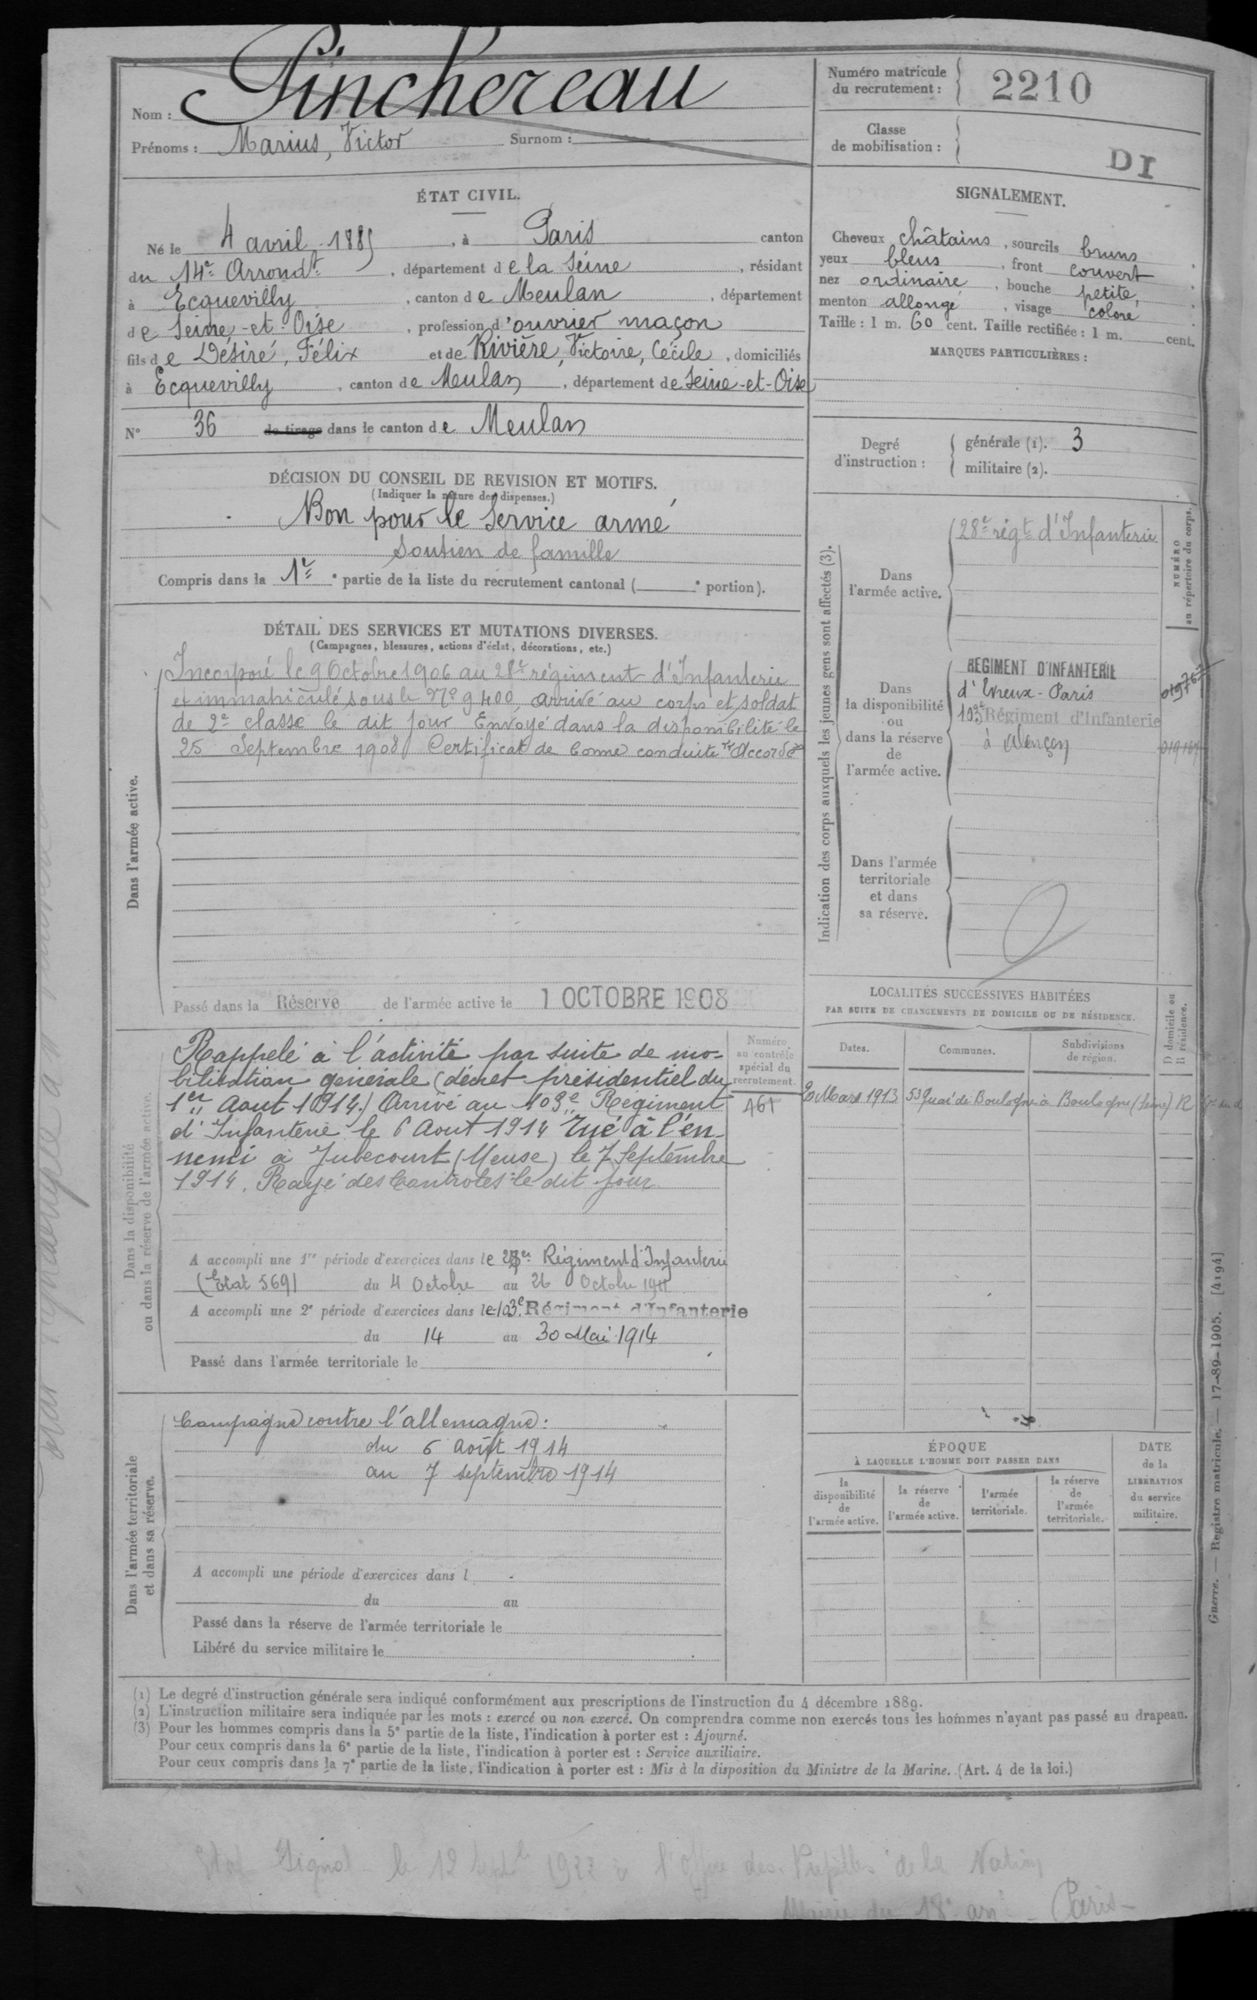 Nom : Pinchereau
Prénoms : Marius, Victor Surnom :
Numéro matricule
du recrutement : 2210
Classe
de mobilisation :
DI
ÉTAT CIVIL.
Né le 4 avril 1885, à Paris canton
du 14e Arrondt, département de la Seine, résidant
à Ecquevilly, canton de Meulan, département
de Seine-et-Oise, profession d'ouvrier maçon
fils de Désiré, Félix et de Rivière, Victoire, Cécile, domiciliés
à Ecquevilly, canton de Meulan, département de Seine-et-Oise
N° 36 de tirage dans le canton de Meulan
SIGNALEMENT.
Cheveux châtains, sourcils bruns
yeux bleus, front couvert
nez ordinaire, bouche petite,
menton allongé, visage coloré
Taille : 1 m. 60 cent. Taille rectifiée : 1 m. cent.
MARQUES PARTICULIÈRES :
Degré
d'instruction :
générale (1). 3
militaire (2).
DÉCISION DU CONSEIL DE REVISION ET MOTIFS.
(Indiquer la nature des dispenses.)
Bon pour le Service armé
Soutien de famille
Compris dans la 1re partie de la liste du recrutement cantonal ( e portion).
DÉTAIL DES SERVICES ET MUTATIONS DIVERSES.
(Campagnes, blessures, actions d'éclat, décorations, etc.)
Dans l'armée active.
Incorporé le 9 Octobre 1906 au 28e régiment d'Infanterie
et immatriculé sous le No 9400, arrivé au corps et soldat
de 2e classe le dit jour Envoyé dans la disponibilité le
25 Septembre 1908 Certificat de bonne conduite "Accordé"
Passé dans la Réserve de l'armée active le 1 OCTOBRE 1908
Indication des corps auxquels les jeunes gens sont affectés (3).
NUMÉRO
au répertoire du corps.
Dans
l'armée active.
28e régt d'Infanterie
Dans
la disponibilité
ou
dans la réserve
de
l'armée active.
RÉGIMENT D'INFANTERIE
d'Evreux-Paris
103e Régiment d'Infanterie
à Alençon
Dans l'armée
territoriale
et dans
sa réserve.
LOCALITÉS SUCCESSIVES HABITÉES
PAR SUITE DE CHANGEMENTS DE DOMICILE OU DE RÉSIDENCE.
Dates.
Communes.
Subdivisions
de région.
D domicile ou
R résidence.
20 Mars 1913 53 Quai de Boulogne à Boulogne (Seine) R
Dans la disponibilité
ou dans la réserve de l'armée active.
Numéro
au contrôle
spécial du
recrutement.
461
Rappelé à l'activité par suite de mo-
bilisation générale (décret présidentiel du
1er Aout 1914.) Arrivé au 103e Régiment
d'Infanterie le 6 Aout 1914 Tué à l'en-
nemi à Jubécourt (Meuse) le 7 Septembre
1914. Rayé des Controles le dit jour
A accompli une 1re période d'exercices dans le 28e Régiment d'Infanterie
(Etat 569) du 4 Octobre au 26 Octobre 1911
A accompli une 2e période d'exercices dans le 103e Régiment d'Infanterie
du 14 au 30 Mai 1914
Passé dans l'armée territoriale le
Dans l'armée territoriale
et dans sa réserve.
Campagne contre l'allemagne :
du 6 août 1914
au 7 septembre 1914
A accompli une période d'exercices dans l
du au
Passé dans la réserve de l'armée territoriale le
Libéré du service militaire le
ÉPOQUE
À LAQUELLE L'HOMME DOIT PASSER DANS
DATE
de la
LIBÉRATION
du service
militaire.
la
disponibilité
de
l'armée active.
la réserve
de
l'armée active.
l'armée
territoriale.
la réserve
de
l'armée
territoriale.
Guerre. — Registre matricule. — 17-89-1905. [4194]
(1) Le degré d'instruction générale sera indiqué conformément aux prescriptions de l'instruction du 4 décembre 1889.
(2) L'instruction militaire sera indiquée par les mots : exercé ou non exercé. On comprendra comme non exercés tous les hommes n'ayant pas passé au drapeau.
(3) Pour les hommes compris dans la 5e partie de la liste, l'indication à porter est : Ajourné.
Pour ceux compris dans la 6e partie de la liste, l'indication à porter est : Service auxiliaire.
Pour ceux compris dans la 7e partie de la liste, l'indication à porter est : Mis à la disposition du Ministre de la Marine. (Art. 4 de la loi.)
le 12 Septbre 1922 à l'Office des Pupilles de la Nation
Mairie du 18e arrt - Paris -